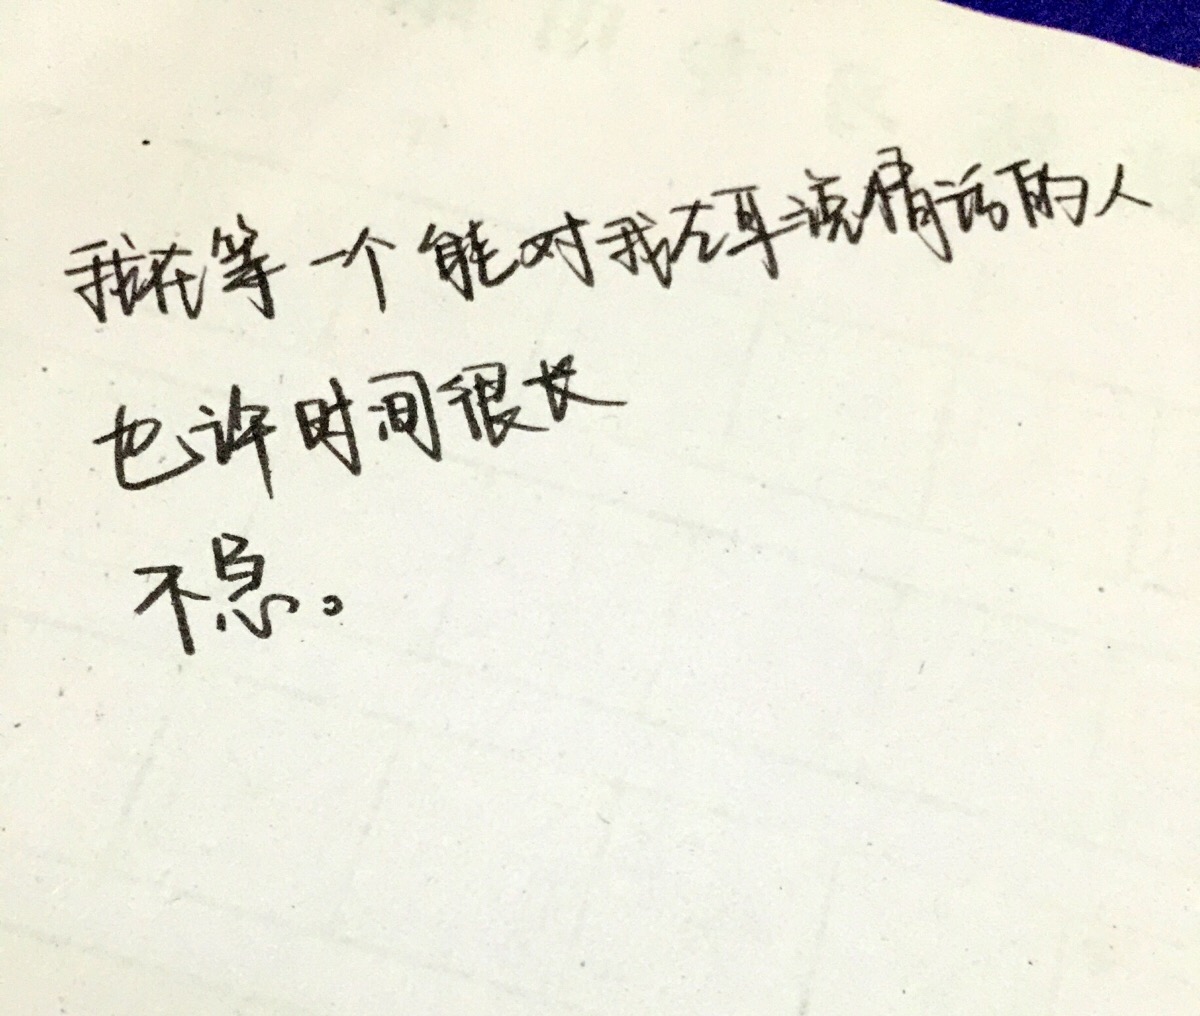 我在等一个能对我左耳说情话的人
也许时间很长
不急。